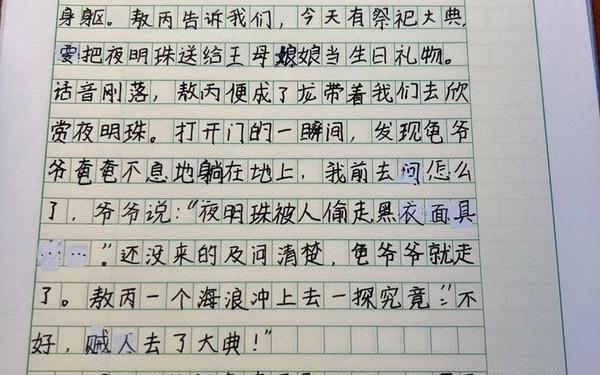 身躯。敖丙告诉我们，今天有祭祀大典，
要把夜明珠送给王母娘娘当生日礼物。
话音刚落，敖丙便成了龙带着我们去欣
赏夜明珠。打开门的一瞬间，发现龟爷
爷奄奄不息地躺在地上，我前去问怎么
了，爷爷说：“夜明珠被人偷走，黑衣面具
……”还没来的及问清楚，龟爷爷就走
了。敖丙一个海浪冲上去一探究竟：“不
好，贼人去了大典！”